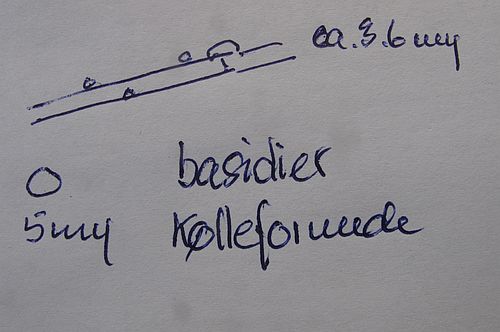 ca. 3.6 my
basidier
5my kølleformede